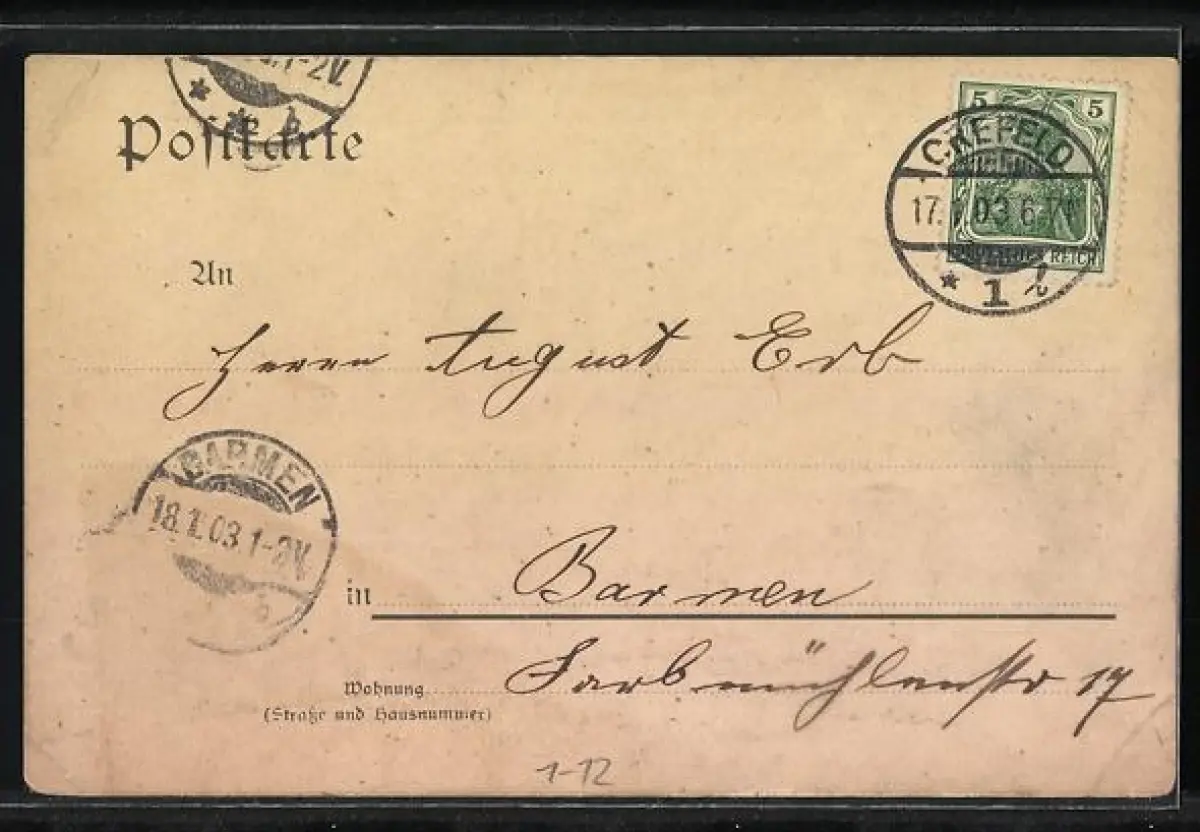 1-2V.
Postkarte
5 5
CREFELD
17. 03. 6-7N
DEUTSCHES REICH
* 1 h
An
Herrn August Erb
BARMEN
18.1.03.1-2V.
in Barmen
Wohnung Farbmühlenstr 17
(Straße und Hausnummer)
1-12